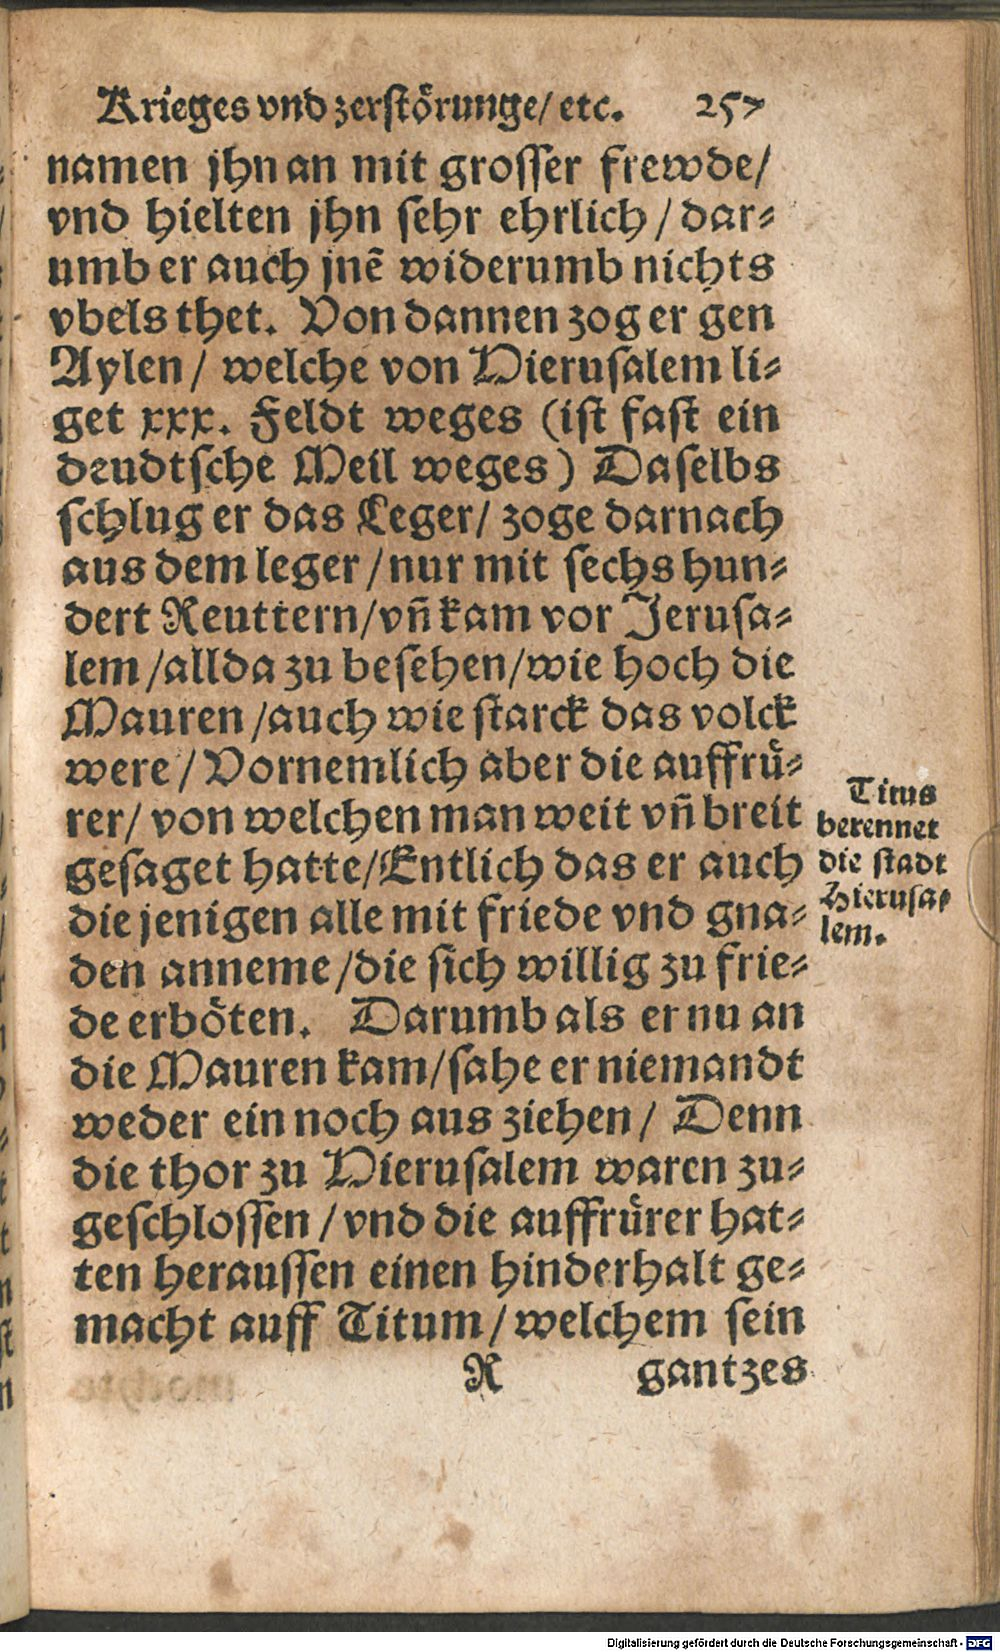 Krieges vnd zerstörunge/ etc. 257
namen jhn an mit grosser frewde/
vnd hielten jhn sehr ehrlich / dar-
umb er auch jnē widerumb nichts
vbels thet. Von dannen zog er gen
Aylen / welche von Hierusalem li-
get xxx. Feldt weges (ist fast ein
deudtsche Meil weges) Daselbs
schlug er das Leger/ zoge darnach
aus dem leger / nur mit sechs hun-
dert Reuttern/ vn̄ kam vor Jerusa-
lem / allda zu besehen/ wie hoch die
Mauren / auch wie starck das volck
were / Vornemlich aber die auffrů-
rer/ von welchen man weit vn̄ breit
gesaget hatte/ Entlich das er auch
die jenigen alle mit friede vnd gna-
den anneme / die sich willig zu frie-
de erböten. Darumb als er nu an
die Mauren kam/ sahe er niemandt
weder ein noch aus ziehen / Denn
die thor zu Hierusalem waren zu-
geschlossen / vnd die auffrůrer hat-
ten heraussen einen hinderhalt ge-
macht auff Titum / welchem sein
R gantzes
Titus
berennet
die stadt
Hierusa-
lem.
Digitalisierung gefördert durch die Deutsche Forschungsgemeinschaft - DFG